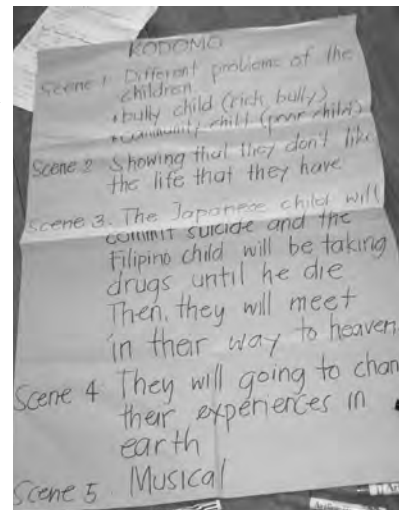 KODOMO
Scene 1. Different problems of the
children
• bully child (rich bully)
• community child (poor child)
Scene 2 Showing that they don't like
the life that they have
Scene 3. The Japanese child will
commit suicide and the
Filipino child will be taking
drugs until he die
Then, they will meet
in their way to heaven
Scene 4 They will going to chan
their experiences in
earth
Scene 5. Musical